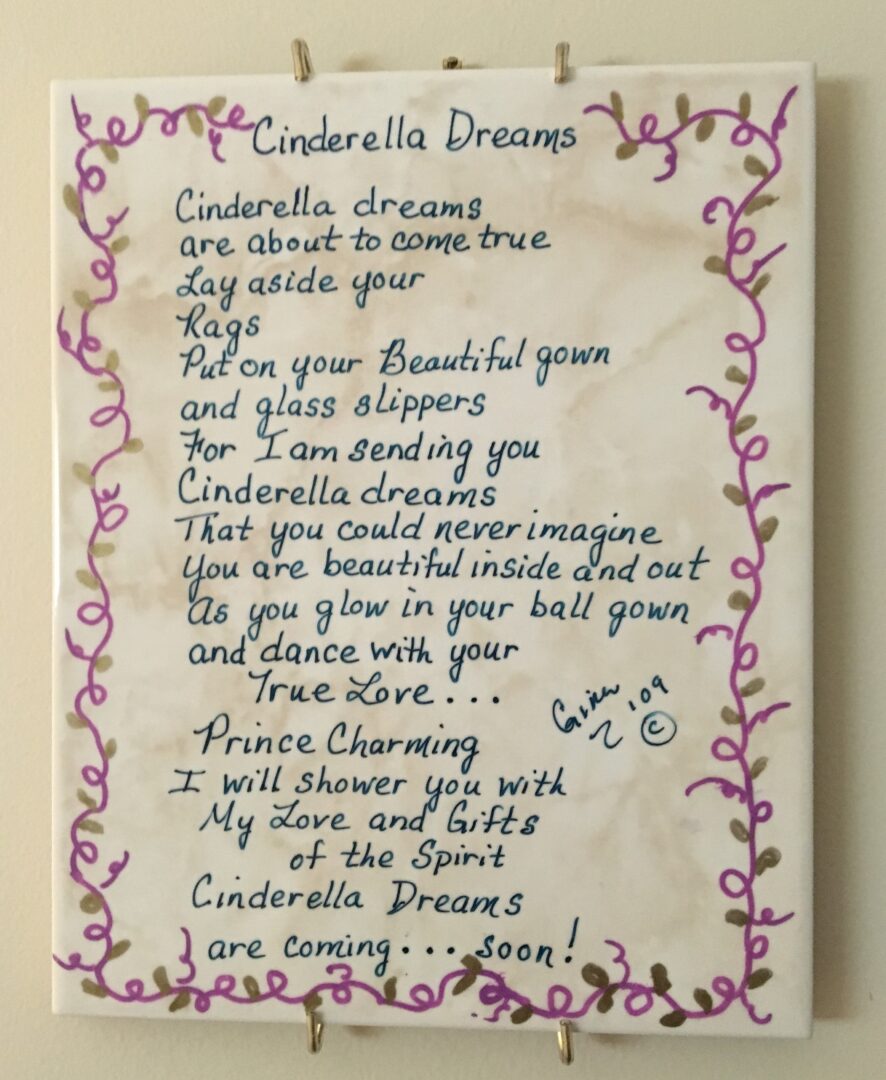 Cinderella Dreams
Cinderella dreams
are about to come true
Lay aside your
Rags
Put on your Beautiful gown
and glass slippers
For I am sending you
Cinderella dreams
That you could never imagine
You are beautiful inside and out
As you glow in your ball gown
and dance with your
True Love...
'09
©
Prince Charming
I will shower you with
My Love and Gifts
of the Spirit
Cinderella Dreams
are coming... soon!